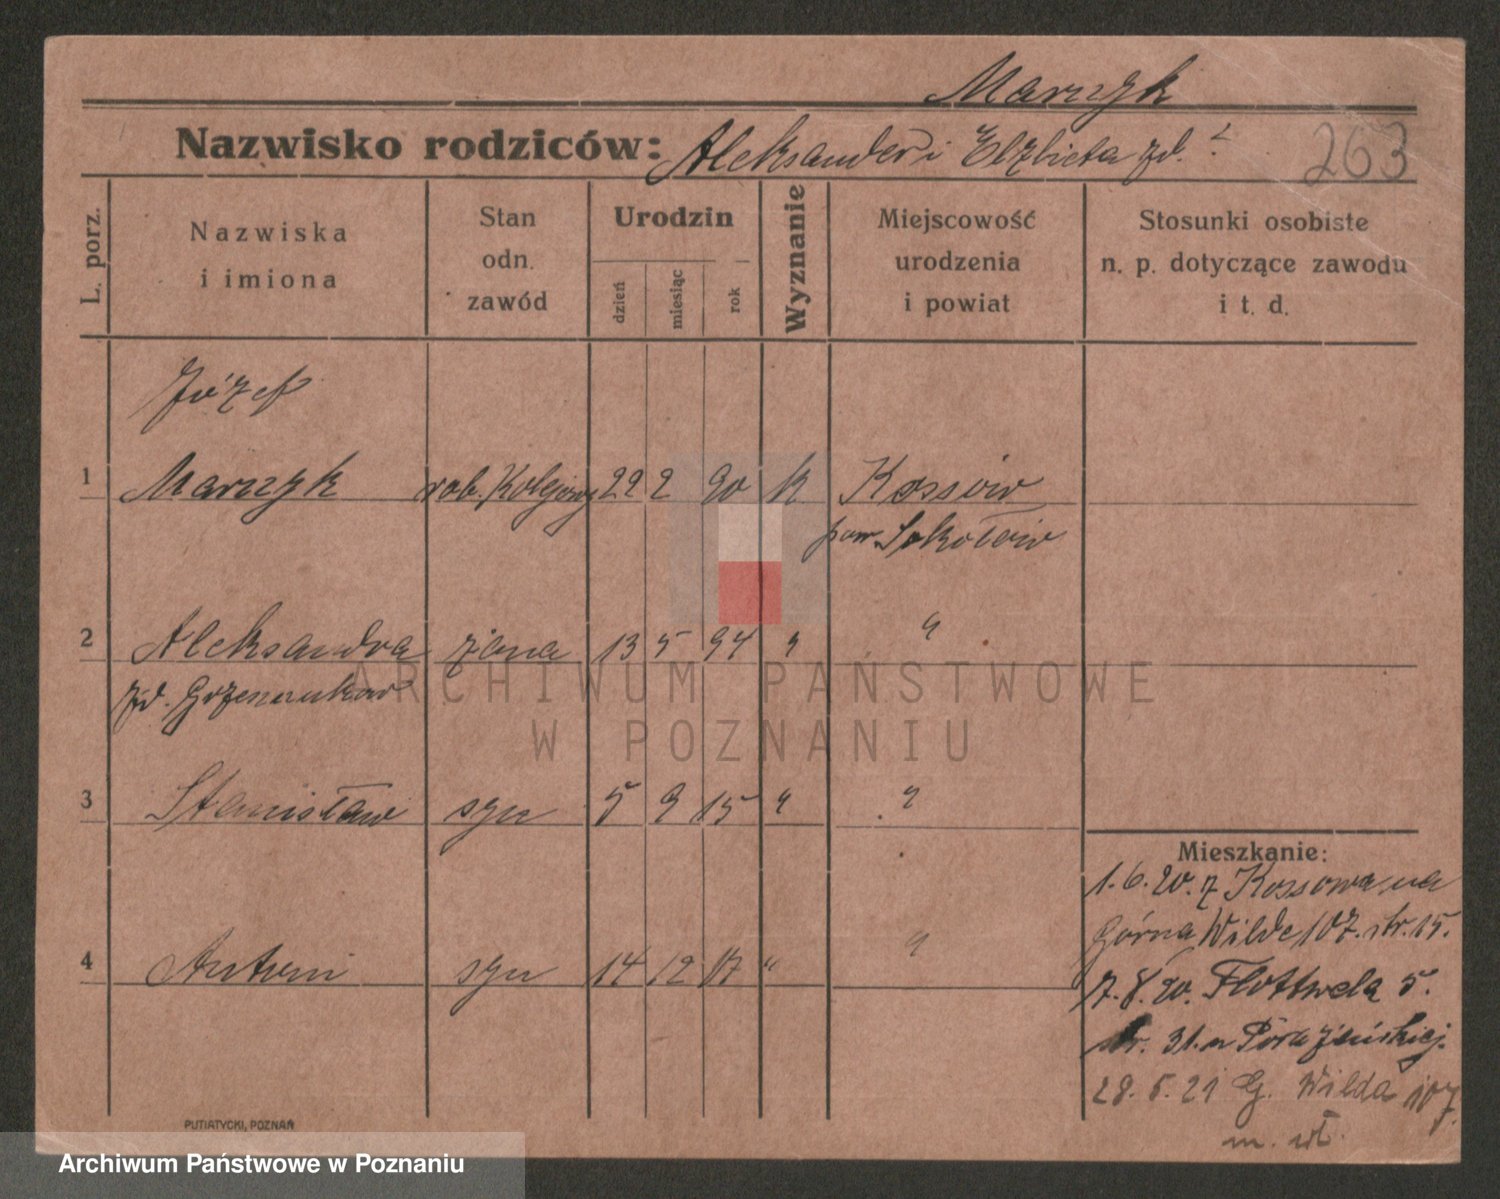 Marzyk
Nazwisko rodziców: Aleksander i Elżbieta zd. ?
263
L. porz.
Nazwiska
i imiona
Stan
odn.
zawód
Urodzin
dzień
miesiąc
rok
Wyznanie
Miejscowość
urodzenia
i powiat
Stosunki osobiste
n. p. dotyczące zawodu
i t. d.
Józef
1 Marzyk rob. Kolejowy 22 2 90 k Kossów
pow. Sokołów
2 Aleksandra żona 13 5 94 " "
zd.
3 Stanisław syn 5 9 15 " "
4 Antoni syn 14 12 17 " "
Mieszkanie:
1.6.20. z Kossowa na
Górna Wilde 107. str. 15.
7.8.20. Flottwela 5.
str. 31. u
28.5.21 G. Wilda 107.
m. wł.
PUTIATYCKI, POZNAŃ
ARCHIWUM PAŃSTWOWE
W POZNANIU
Archiwum Państwowe w Poznaniu